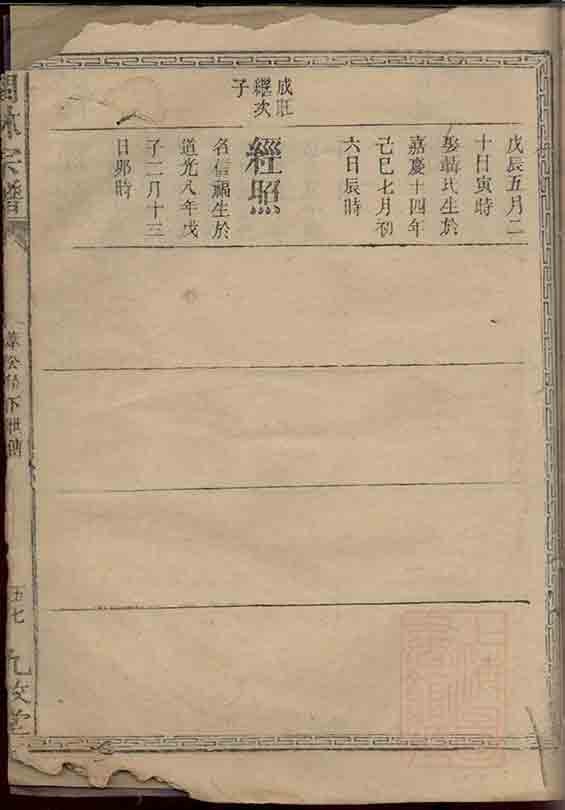 戊辰五月二
十日寅時
娶韓氏生於
嘉慶十四年
己巳七月初
六日辰時
成旺
繼次
子
經照
名信禍生於
道光八年戊
子二月十三
日卯時
宗譜
公 下世
五七
九